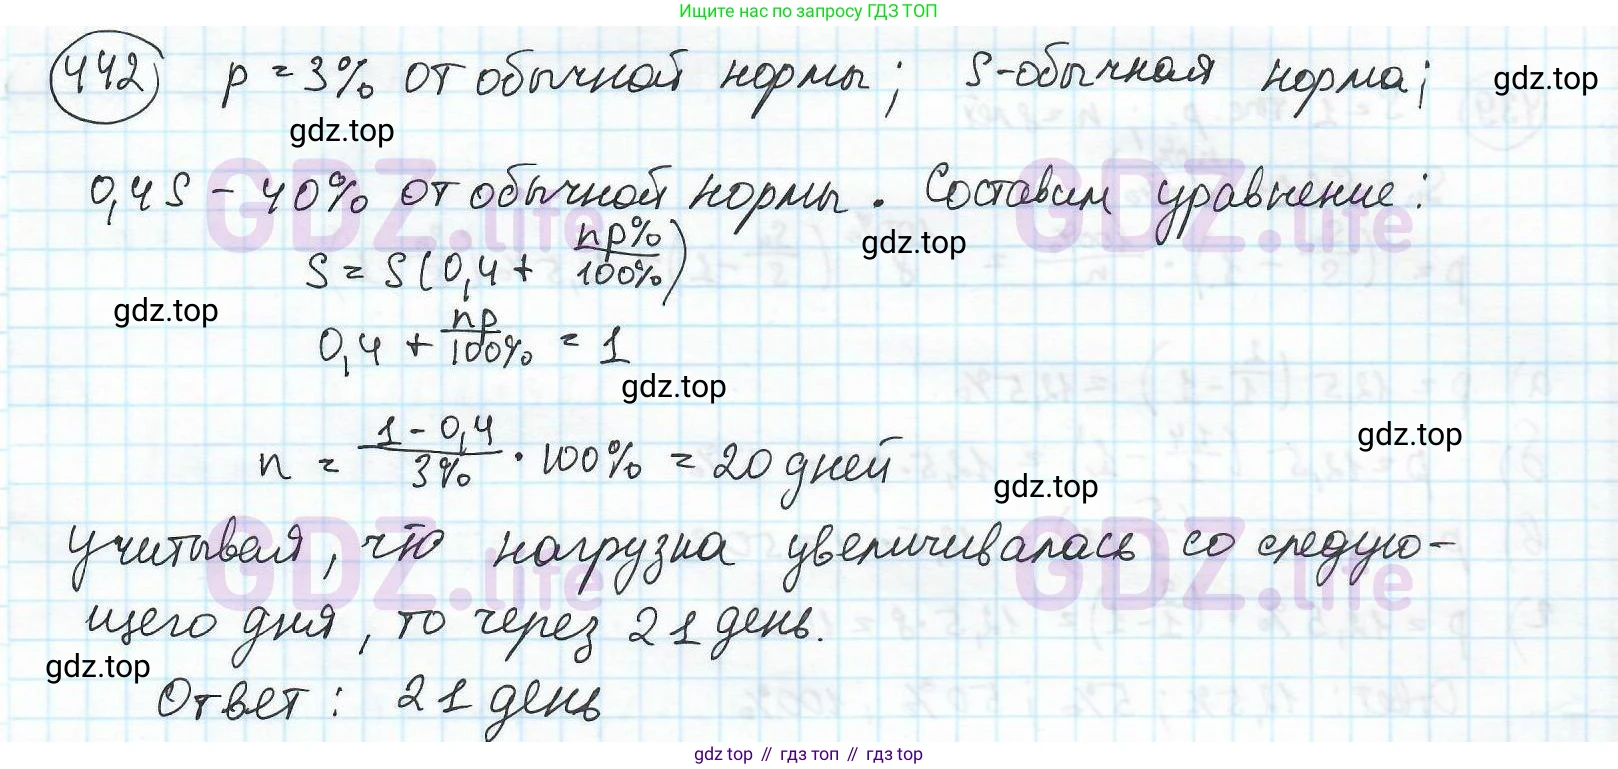 Ищите нас по запросу ГДЗ ТОП
442 p = 3% от обычной нормы; S-обычная норма;
gdz.top
gdz.top
0,4S - 40% от обычной нормы. Составим уравнение:
GDZ.life GDZ.life
gdz.top
S = S(0,4 + np%/100%)
gdz.top
0,4 + np/100% = 1
gdz.top
gdz.top
n = (1 - 0,4)/3% · 100% = 20 дней
gdz.top
учитывая, что нагрузка увеличивалась со следую-
GDZ.life GDZ.life
щего дня, то через 21 день.
gdz.top
Ответ: 21 день
gdz top // гдз топ // гдз top